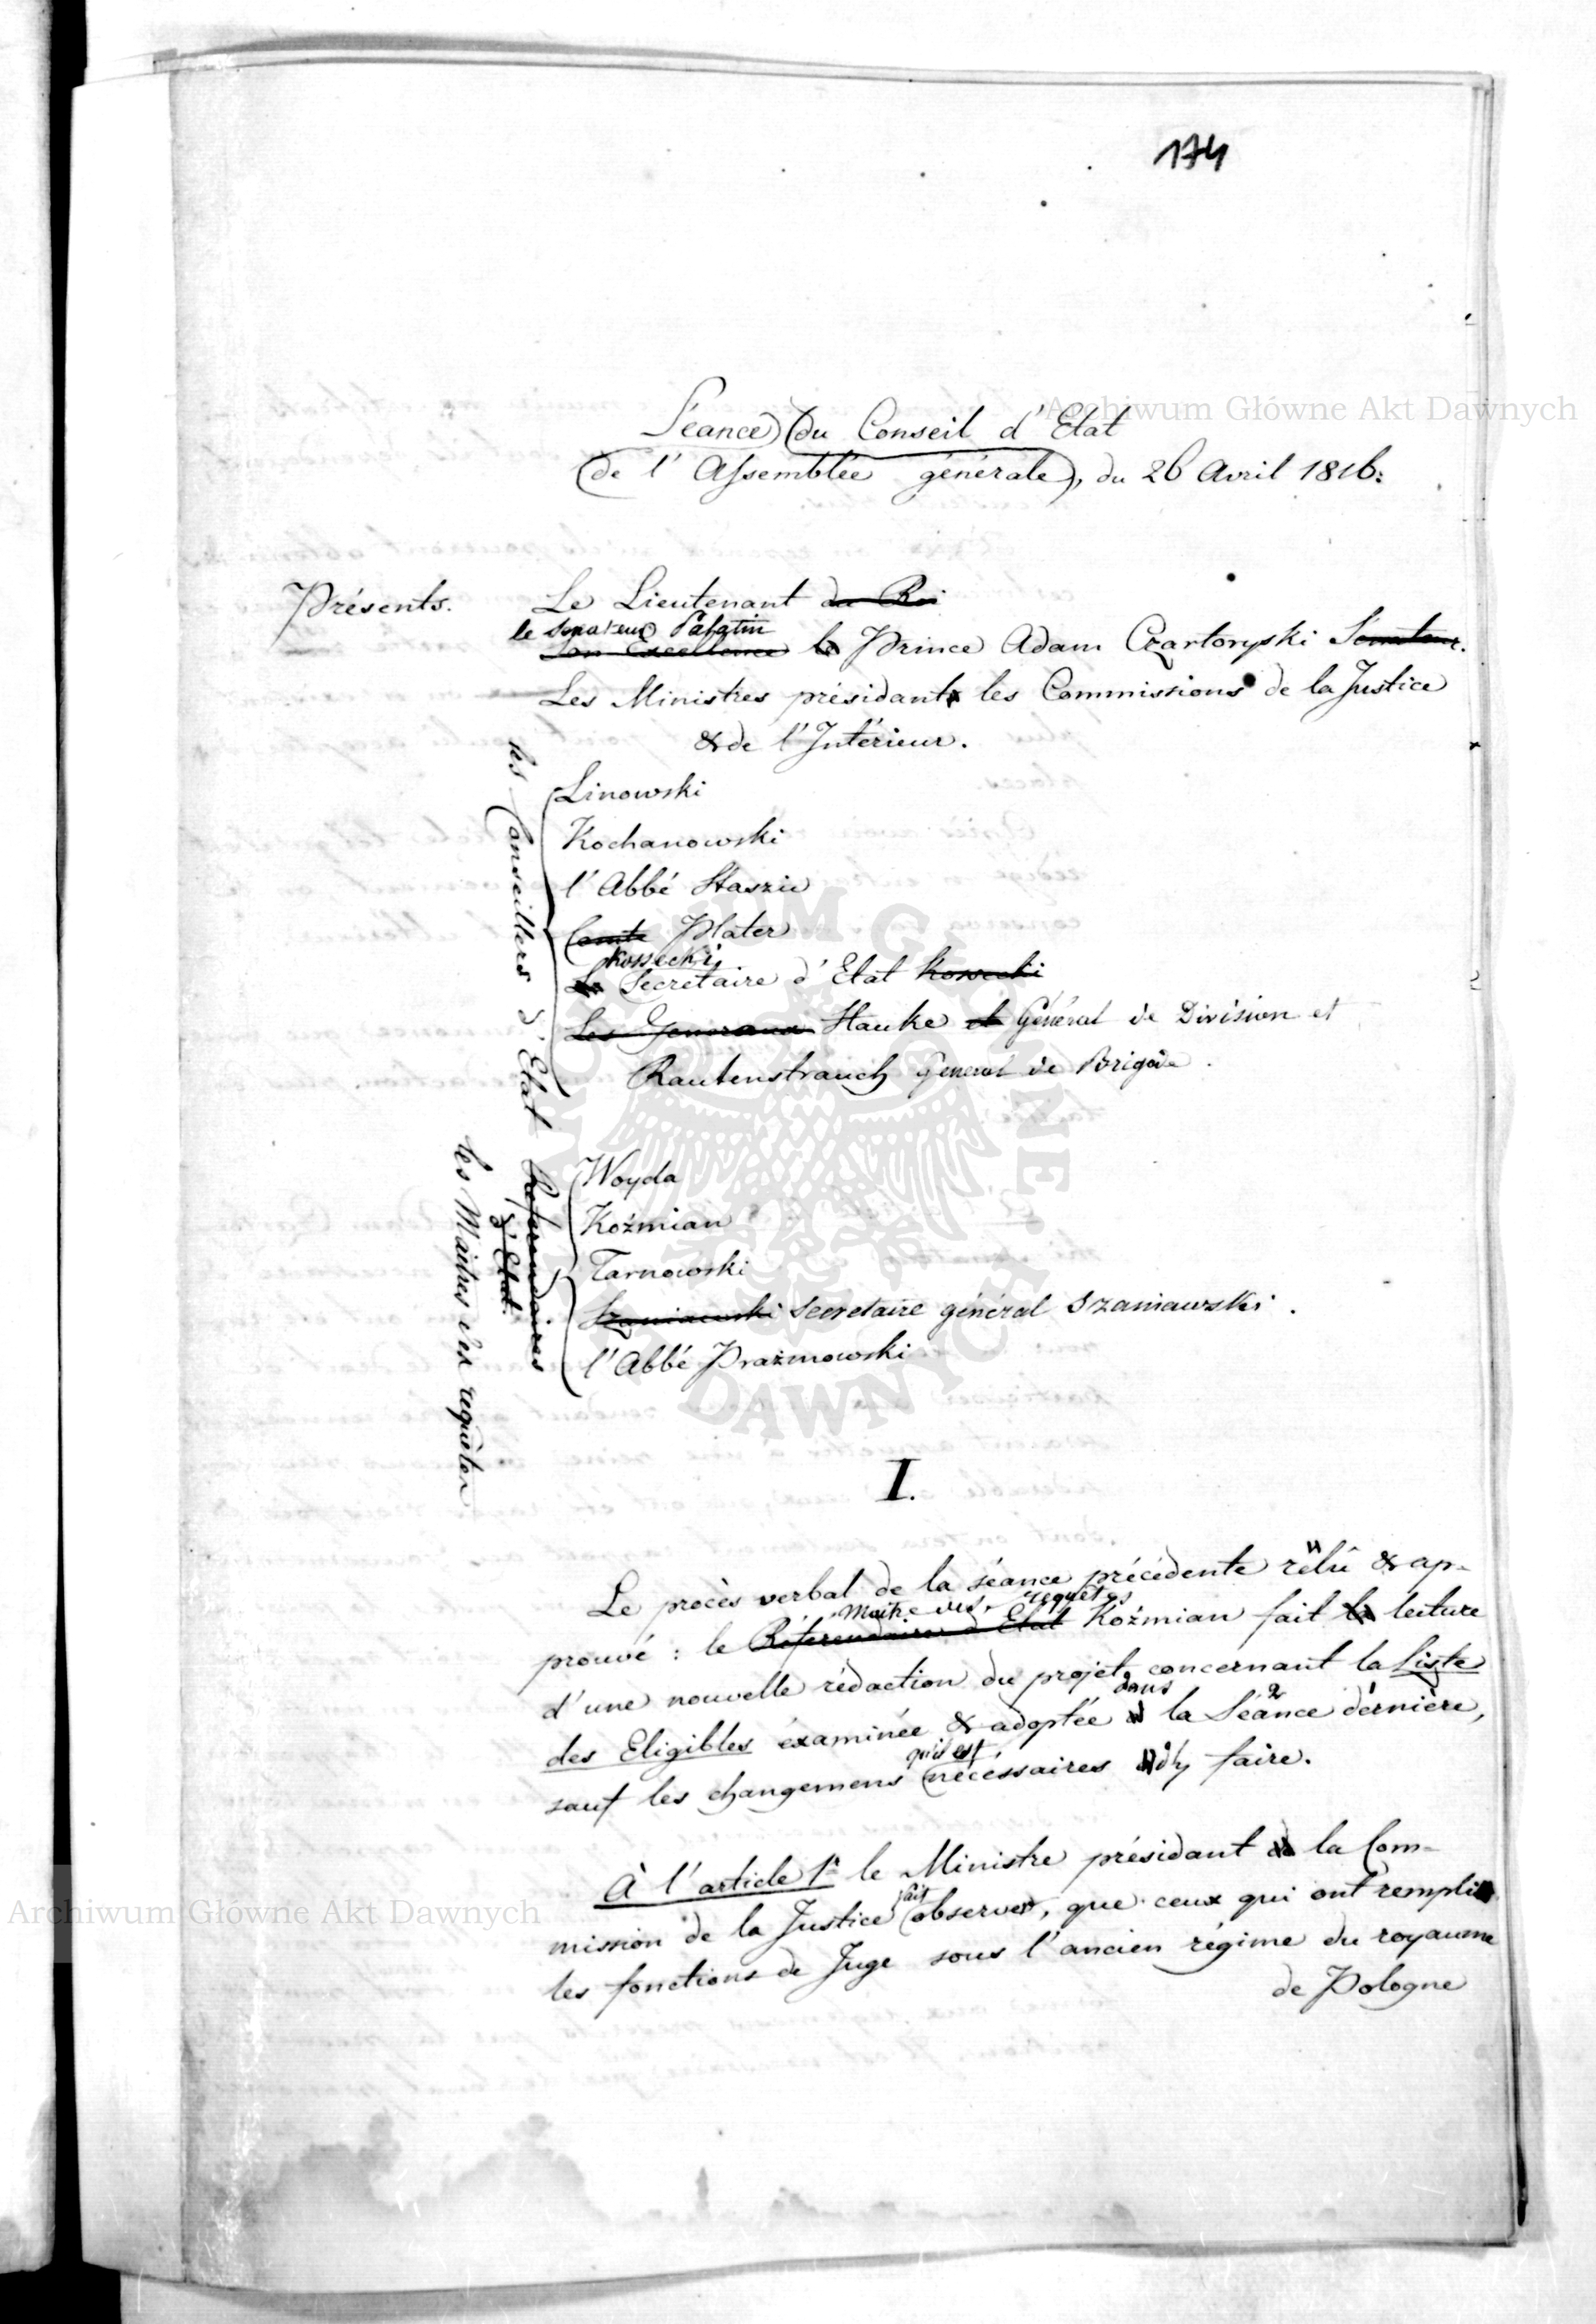 174
Archiwum Główne Akt Dawnych
Séance du Conseil d'Etat
(de l'Assemblée générale), du 26 Avril 1816.
Présents.
Le Lieutenant du Roi
le Senateur Palatin
Son Excellence le Prince Adam Czartoryski Senateur.
Les Ministres présidant les Commissions de la Justice
& de l'Intérieur.
les Conseillers d'Etat
Linowski
Kochanowski
l'Abbé Staszic
Comte Plater
Kossecki
Le Secretaire d'Etat Kossecki
Les Generaux Hauke et Général de Division et
Rautenstrauch General de Brigade.
Referendaires
d'Etat.
les Maitres des requêtes
Woyda
Koźmian
Tarnowski
Szaniawski Secretaire général Szaniawski.
l'Abbé Prażmowski
I.
Le procès verbal de la séance précédente rélû & ap-
Maitre des requêtes
prouvé : le Référendaire d'Etat Koźmian fait la lecture
d'une nouvelle rédaction du projet concernant la Liste
dans
des Eligibles éxaminée & adoptée à la Séance dernière,
qu'il est
sauf les changemens nécéssaires d'y faire.
À l'article 1r le Ministre présidant la Com-
fait
mission de la Justice observer, que ceux qui ont rempli
les fonctions de Juge sous l'ancien régime du royaume
de Pologne
Archiwum Główne Akt Dawnych
ARCHIWUM GŁÓWNE AKT DAWNYCH